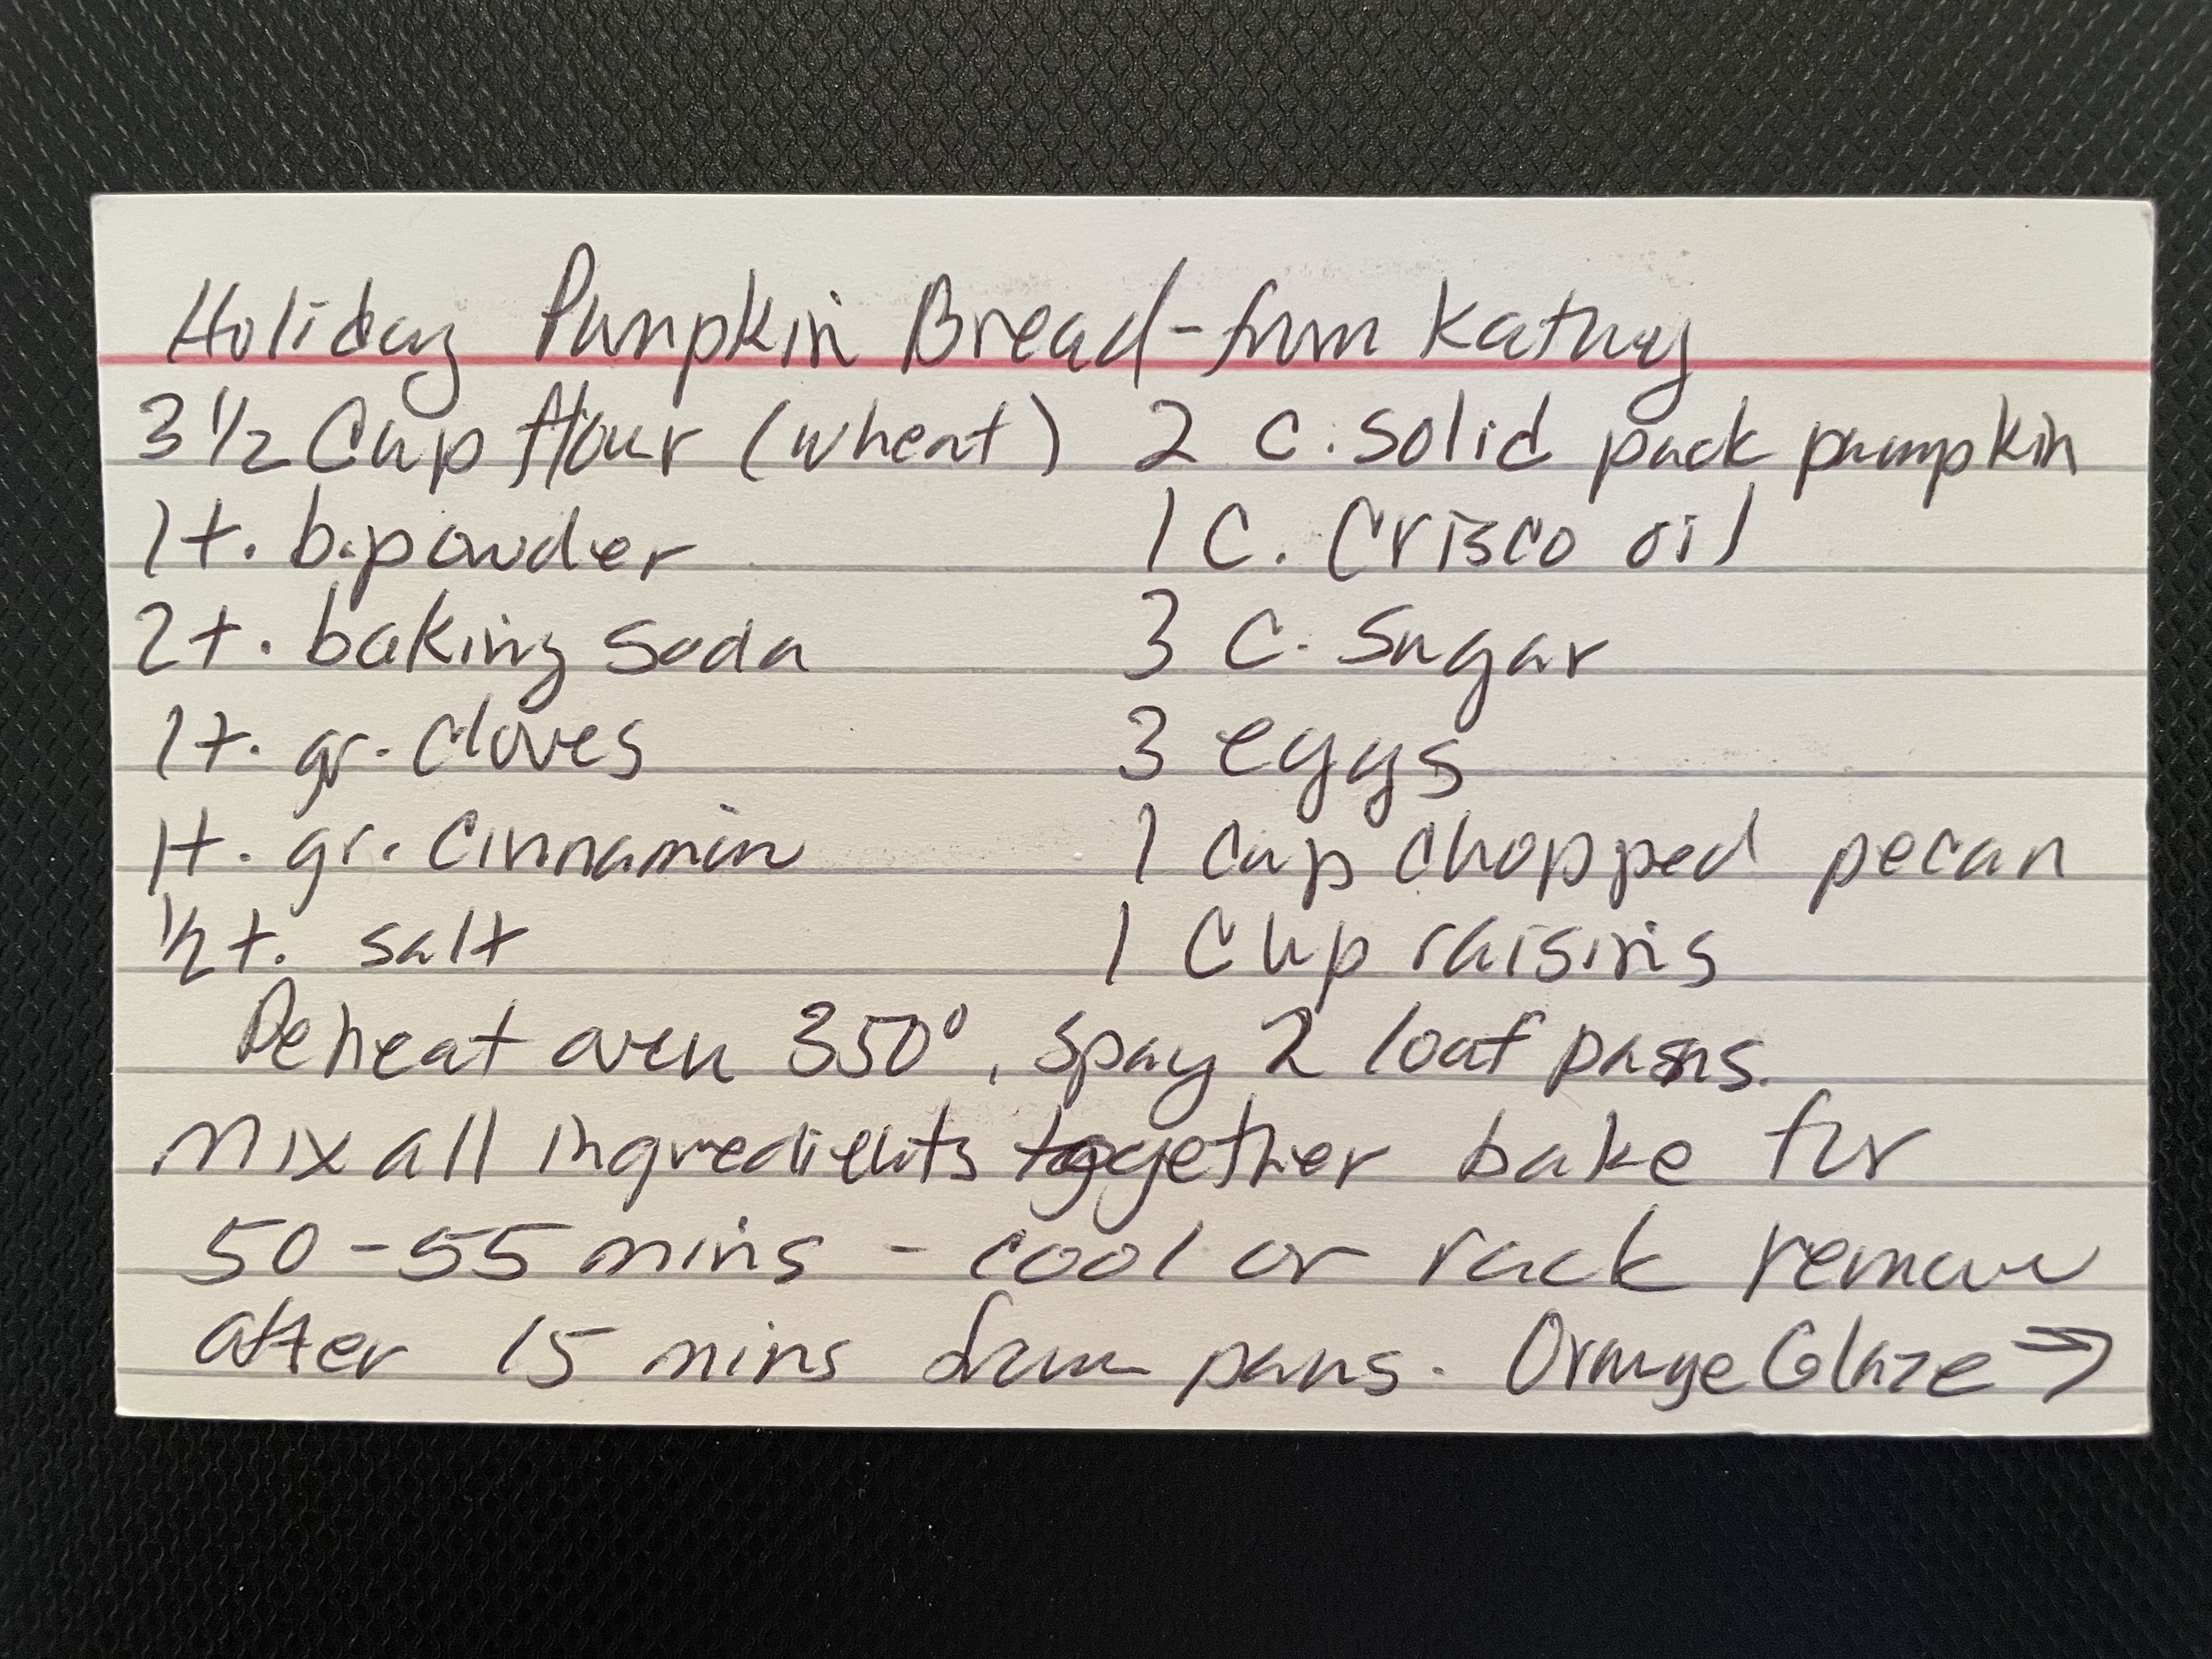 Holiday Pumpkin Bread - from Kathy
3 1/2 Cup flour (wheat) 2 C. solid pack pumpkin
1t. b.powder 1 C. Crisco oil
2t. baking soda 3 C. Sugar
1t. gr. cloves 3 eggs
1t. gr. Cinnamin 1 Cup chopped pecan
1/2 t. salt 1 Cup raisins
Peheat oven 350°, spay 2 loaf pans.
Mix all ingredients together bake for
50-55 mins - cool or rack remove
after 15 mins from pans. Orange Glaze ⇒